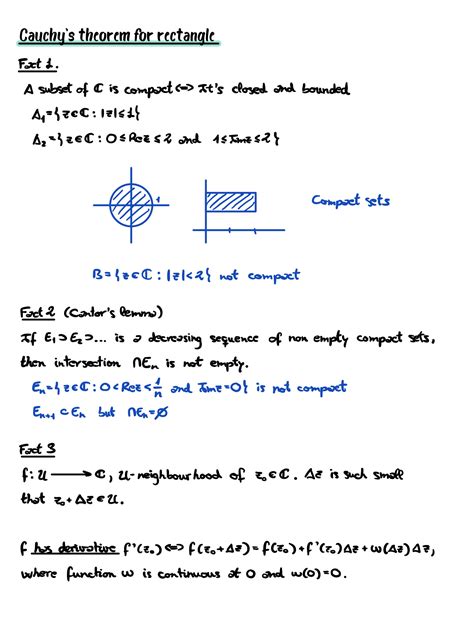 Cauchy's theorem for rectangle
Fact 1.
A subset of ℂ is compact ⟺ It's closed and bounded
A₁={z∈ℂ: |z|≤1}
A₂={z∈ℂ: 0≤Rez≤2 and 1≤Imz≤2}
1
Compact sets
B={z∈ℂ: |z|<2} not compact
Fact 2 (Cantor's lemma)
If E₁⊃E₂⊃... is a decreasing sequence of non empty compact sets,
then intersection ∩Eₙ is not empty.
Eₙ={z∈ℂ: 0<Rez<1/n and Imz=0} is not compact
Eₙ₊₁⊂Eₙ but ∩Eₙ=∅
Fact 3
f: U ⟶ ℂ, U-neighbourhood of z₀∈ℂ. Δz is such small
that z₀+Δz∈U.
f has derivative f'(z₀) ⟺ f(z₀+Δz)=f(z₀)+f'(z₀)Δz+ω(Δz)Δz,
where function ω is continuous at 0 and ω(0)=0.